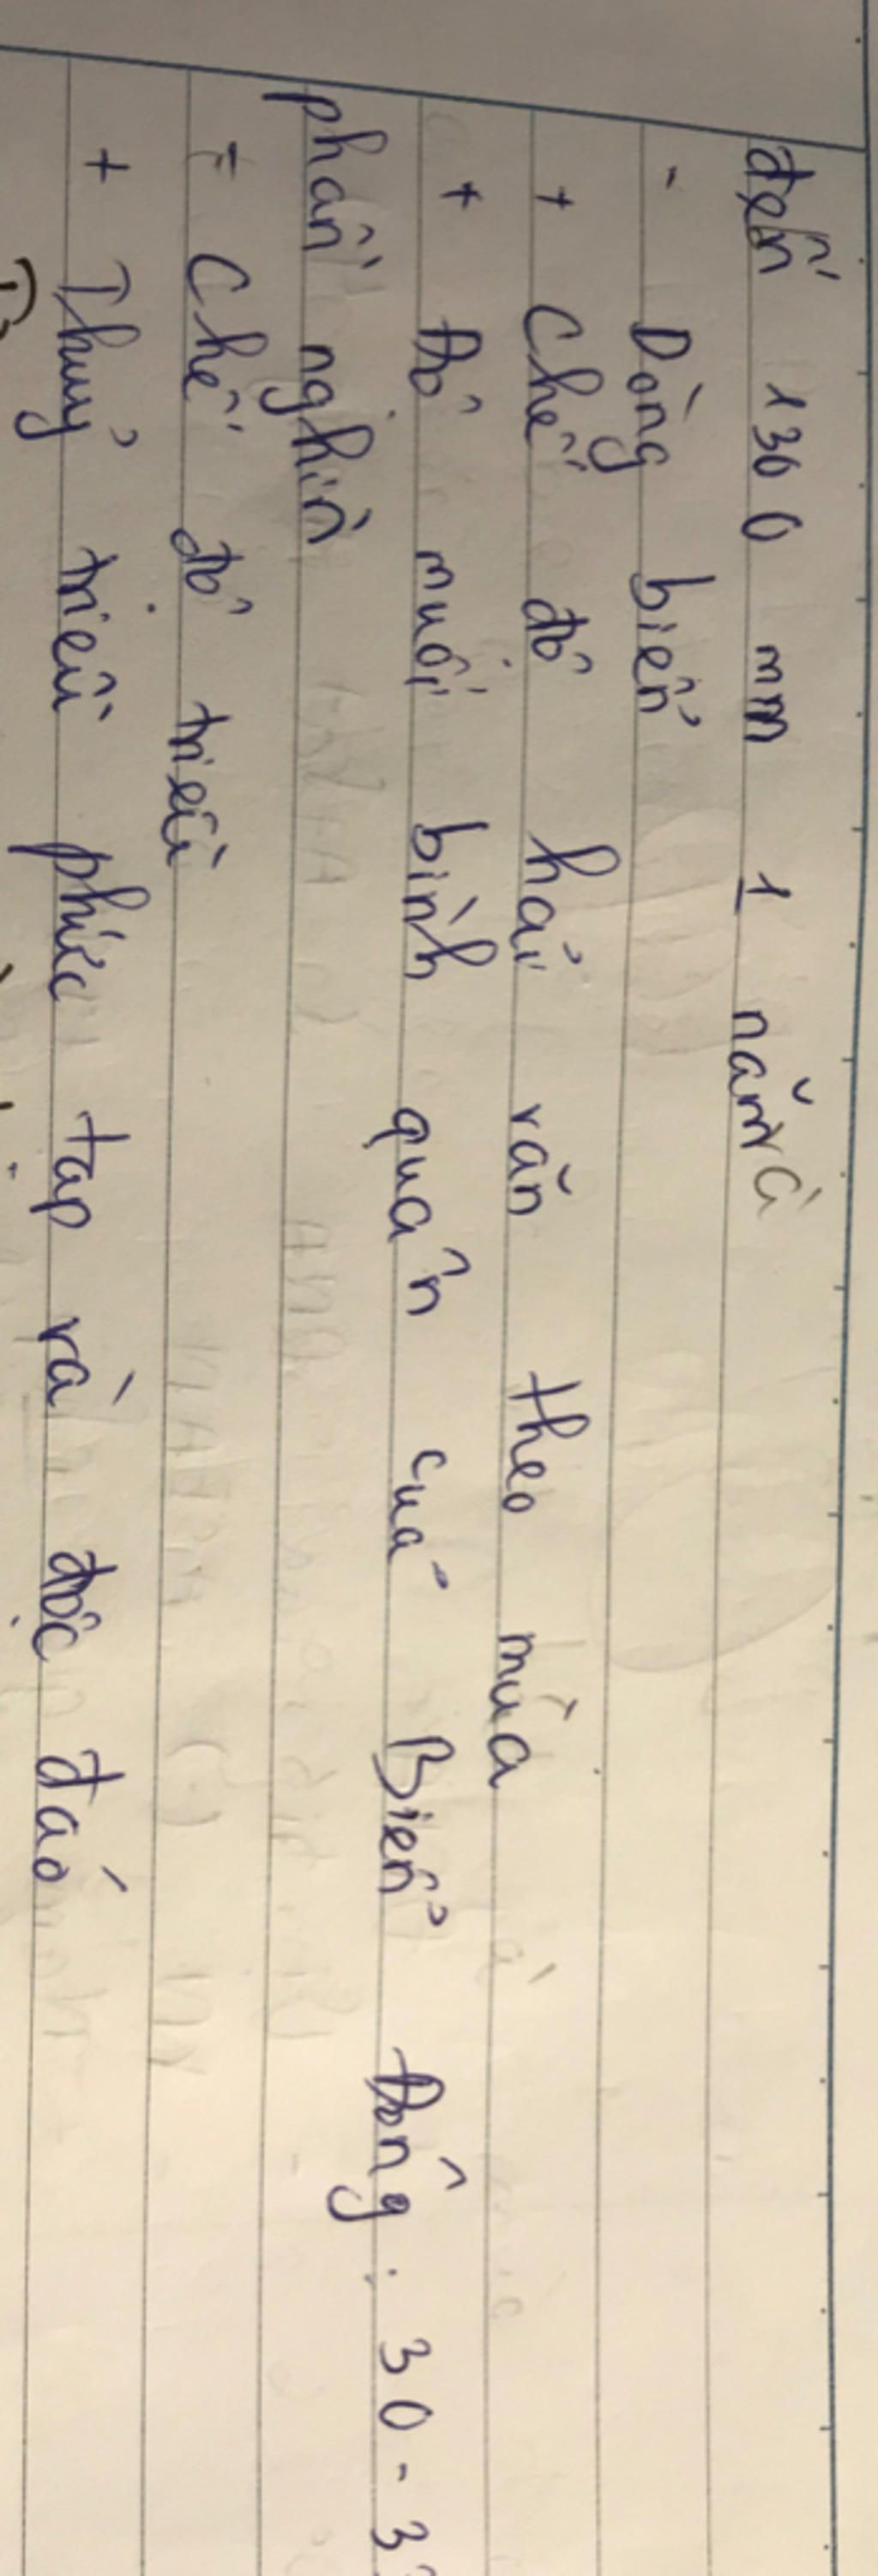 đến 1300 mm 1 năm
- Dòng biển
+ Chế độ hải văn theo mùa
+ Độ muối bình quân của Biển Đông: 30 - 3
phần nghìn
- Chế độ triều
+ Thuỷ triều phức tạp và độc đáo